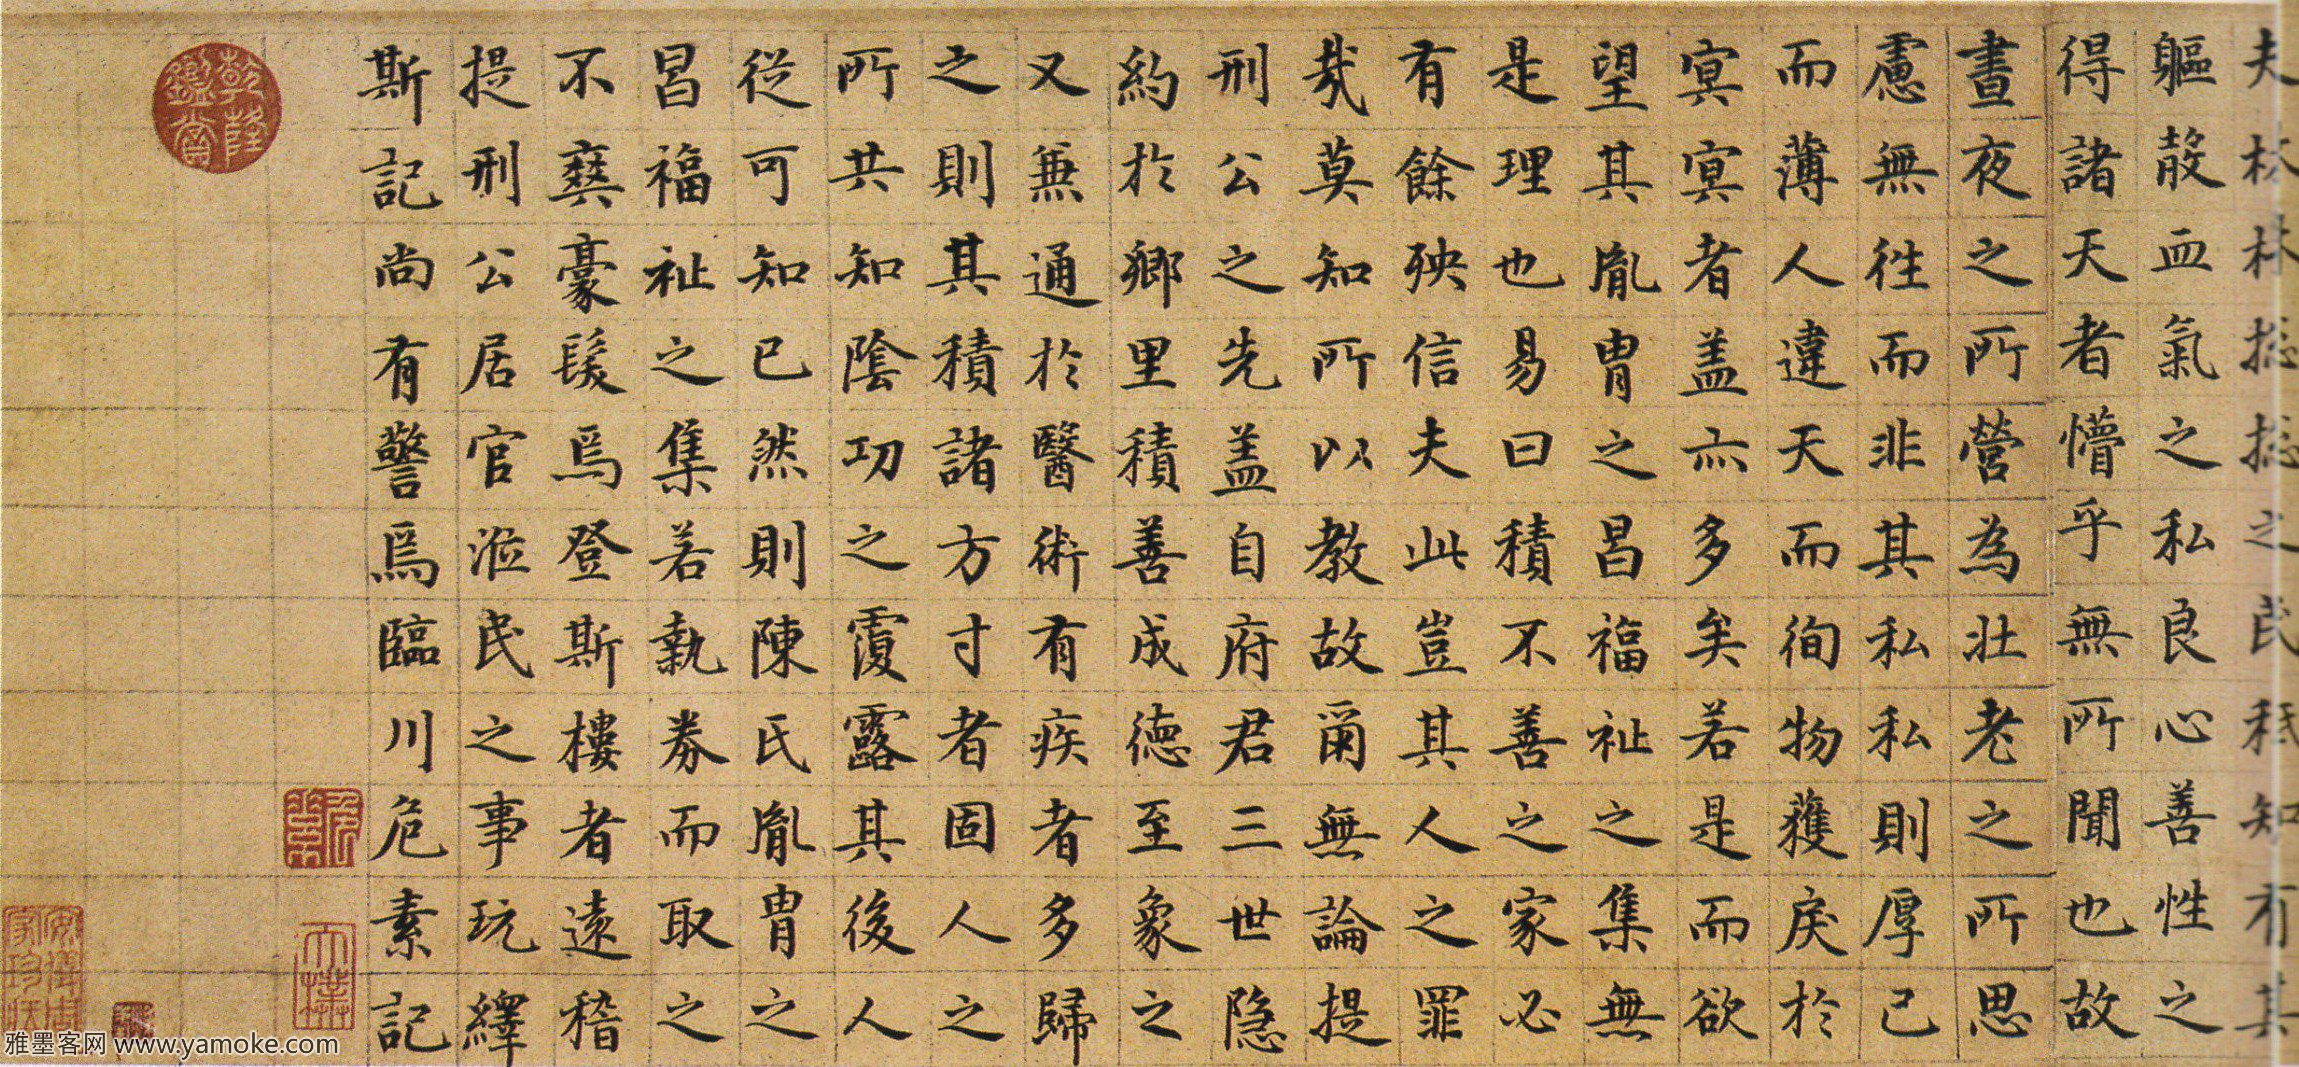 夫林林揔揔之民秪知有其
軀殽血氣之私良心善性之
得諸天者懵乎無所聞也故
晝夜之所營為壯老之所思
慮無徃而非其私私則厚己
而薄人違天而徇物獲戾於
冥冥者盖亦多矣若是而欲
望其胤胄之昌福祉之集無
是理也易曰積不善之家必
有餘殃信夫此豈其人之罪
㦲莫知所以教故爾無論提
刑公之先盖自府君三世隐
約於鄉里積善成德至象之
又兼通於醫術有疾者多歸
之則其積諸方寸者固人之
所共知陰功之霞露其後人
從可知已然則陳氏胤胄之
昌福祉之集若執券而取之
不爽豪髮焉登斯樓者遠稽
提刑公居官涖民之事玩繹
斯記尚有警焉臨川危素記
乾隆鑒賞
雅墨客网 www.yamoke.com